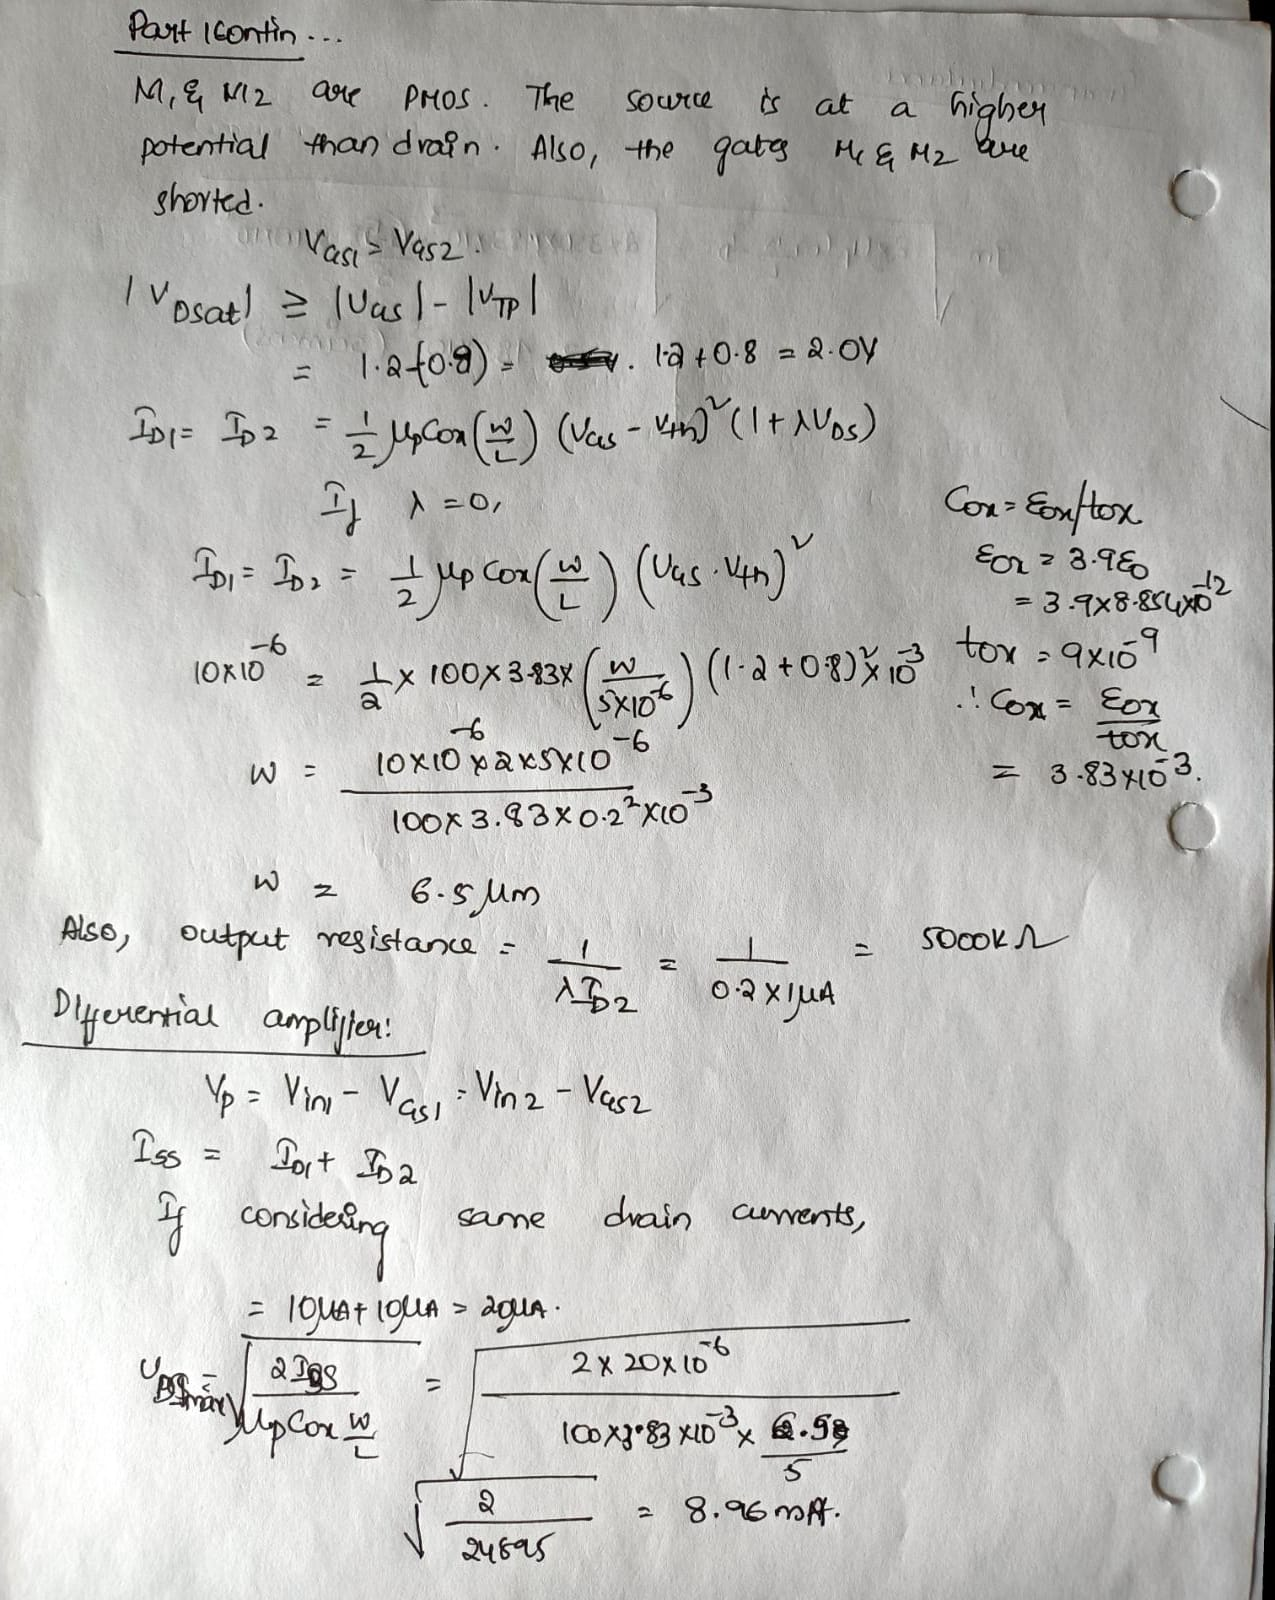 Part 1 Contin...
M1 & M2 are PMOS. The source is at a higher
potential than drain. Also, the gates M1 & M2 are
shorted.
VGS1 = VGS2.
|VDsat| ≥ |VGS| - |VTP|
= 1.2-(0.8) = 1.2+0.8 = 2.0V
ID1 = ID2 = 1/2 μpCox(W/L) (VGS - Vth)² (1+λVDS)
If λ = 0,
Cox = Eox/tox
ID1 = ID2 = 1/2 μp Cox (W/L) (VGS - Vth)²
Eox = 3.9ε0
= 3.9×8.854×10^-12
10×10^-6 = 1/2 × 100×3.83× (W/5×10^-6) (1.2+0.8)² × 10^-3
tox = 9×10^-9
∴ Cox = Eox/tox
= 3.83×10^-3.
W = 10×10^-6 ×2×5×10^-6 / 100×3.83×0.2²×10^-3
W = 6.5 μm
Also, output resistance = 1/λID2 = 1/0.2×1μA = 5000KΩ
Differential amplifier:
Vp = Vin1 - VGS1 = Vin2 - VGS2
ISS = ID1 + ID2
If considering same drain currents,
= 10μA + 10μA = 20μA.
= √(2ISS / μpCox W/L) = √(2×20×10^-6 / 100×3.83×10^-3 ×
√(2 / 24895) = 8.96 mA.